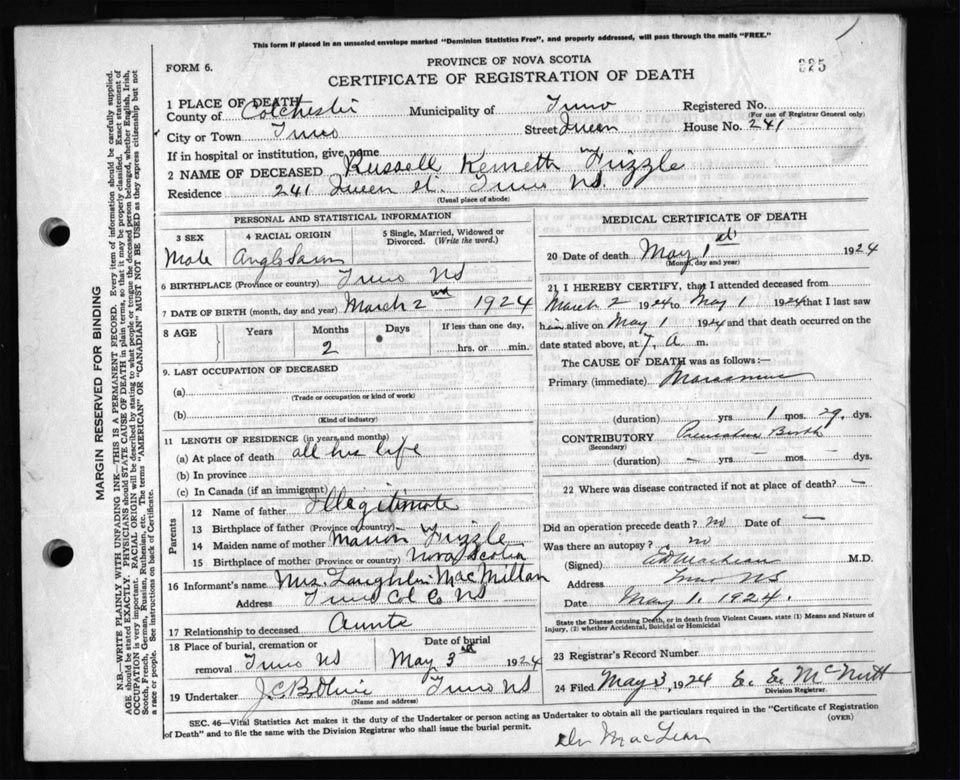 This form if placed in an unsealed envelope marked "Dominion Statistics Free", and properly addressed, will pass through the mails "FREE."
FORM 6.
PROVINCE OF NOVA SCOTIA
325
CERTIFICATE OF REGISTRATION OF DEATH
1 PLACE OF DEATH
County of Colchester Municipality of Truro Registered No.
(For use of Registrar General only)
City or Town Truro Street Queen House No. 241
If in hospital or institution, give name
2 NAME OF DECEASED Russell Kenneth Frizzle
Residence 241 Queen St. Truro NS.
(Usual place of abode)
PERSONAL AND STATISTICAL INFORMATION
3 SEX 4 RACIAL ORIGIN 5 Single, Married, Widowed or Divorced. (Write the word.)
Male
6 BIRTHPLACE (Province or country) Truro NS
7 DATE OF BIRTH (month, day and year) March 2nd 1924
8 AGE Years Months Days If less than one day,
2 hrs. or min.
9. LAST OCCUPATION OF DECEASED
(a)
(Trade or occupation or kind of work)
(b)
(Kind of industry)
11 LENGTH OF RESIDENCE (in years and months)
(a) At place of death all his life
(b) In province
(c) In Canada (if an immigrant)
Parents
12 Name of father Illegitimate
13 Birthplace of father (Province or country)
14 Maiden name of mother Marion Frizzle
15 Birthplace of mother (Province or country) Nova Scotia
16 Informant's name Mrs. Laughlin MacMillan
Address Truro Col Co NS
17 Relationship to deceased Aunte
18 Place of burial, cremation or removal Truro NS
Date of burial
May 3rd 1924
19 Undertaker Truro NS
(Name and address)
MEDICAL CERTIFICATE OF DEATH
20 Date of death May 1st 1924
(Month, day and year)
21 I HEREBY CERTIFY, that I attended deceased from
March 2 1924 to May 1 1924 that I last saw
him alive on May 1 1924 and that death occurred on the
date stated above, at 7. a m.
The CAUSE OF DEATH was as follows:—
Primary (immediate) Marasmus
(duration) yrs 1 mos. 29. dys.
CONTRIBUTORY Premature Birth
(Secondary)
(duration) — yrs — mos. — dys.
22 Where was disease contracted if not at place of death? —
Did an operation precede death? no Date of —
Was there an autopsy? no
(Signed) M.D.
Address Truro NS
Date May 1. 1924.
State the Disease causing Death, or in death from Violent Causes, state (1) Means and Nature of
Injury, (2) whether Accidental, Suicidal or Homicidal
23 Registrar's Record Number
24 Filed May 3, 1924 E. E McNutt
Division Registrar
SEC. 46—Vital Statistics Act makes it the duty of the Undertaker or person acting as Undertaker to obtain all the particulars required in the "Certificate of Registration
of Death" and to file the same with the Division Registrar who shall issue the burial permit.
(OVER)
Dr MacLean
MARGIN RESERVED FOR BINDING
N.B.—WRITE PLAINLY WITH UNFADING INK—THIS IS A PERMANENT RECORD. Every item of information should be carefully supplied.
AGE should be stated EXACTLY. PHYSICIANS should STATE CAUSE OF DEATH in plain terms, so that it may be properly classified. Exact statement of
OCCUPATION is very important. RACIAL ORIGIN will be described by stating to what people or tongue the deceased person belonged, whether English, Irish,
Scotch, French, German, Russian, Ruthenian, etc. The terms "AMERICAN" OR "CANADIAN" MUST NOT BE USED as they express citizenship but not
a race or people. See instructions on back of Certificate.